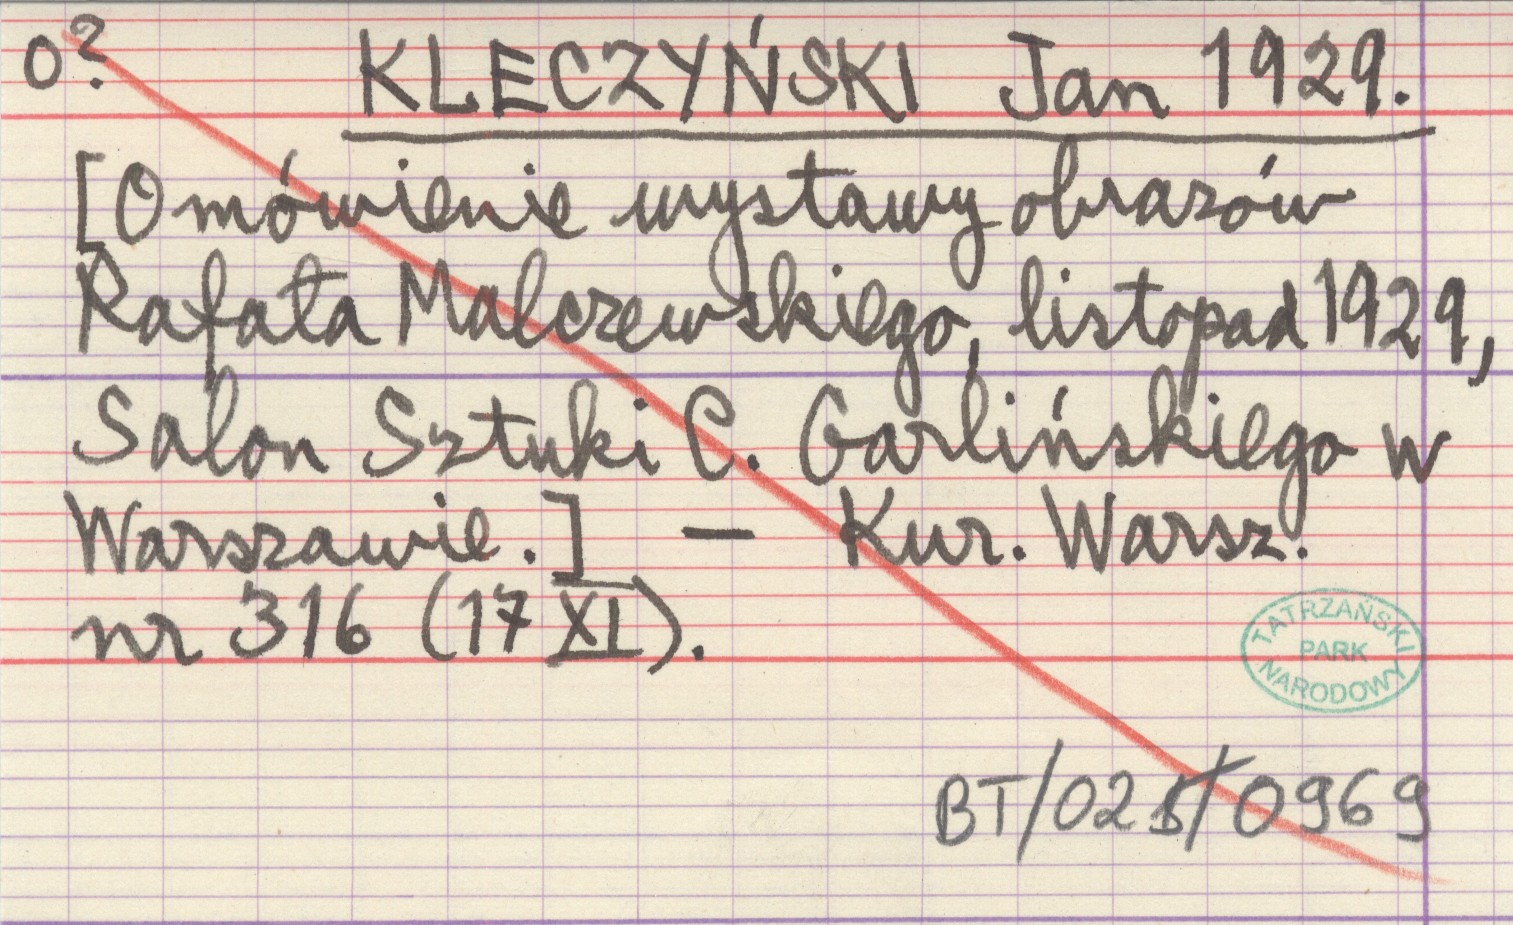 o? KLECZYŃSKI Jan 1929.
[Omówienie wystawy obrazów
Rafała Malczewskiego, listopad 1929,
Salon Sztuki C. Garlińskiego w
Warszawie.] — Kur. Warsz.
nr 316 (17 XI).
TATRZAŃSKI
PARK
NARODOWY